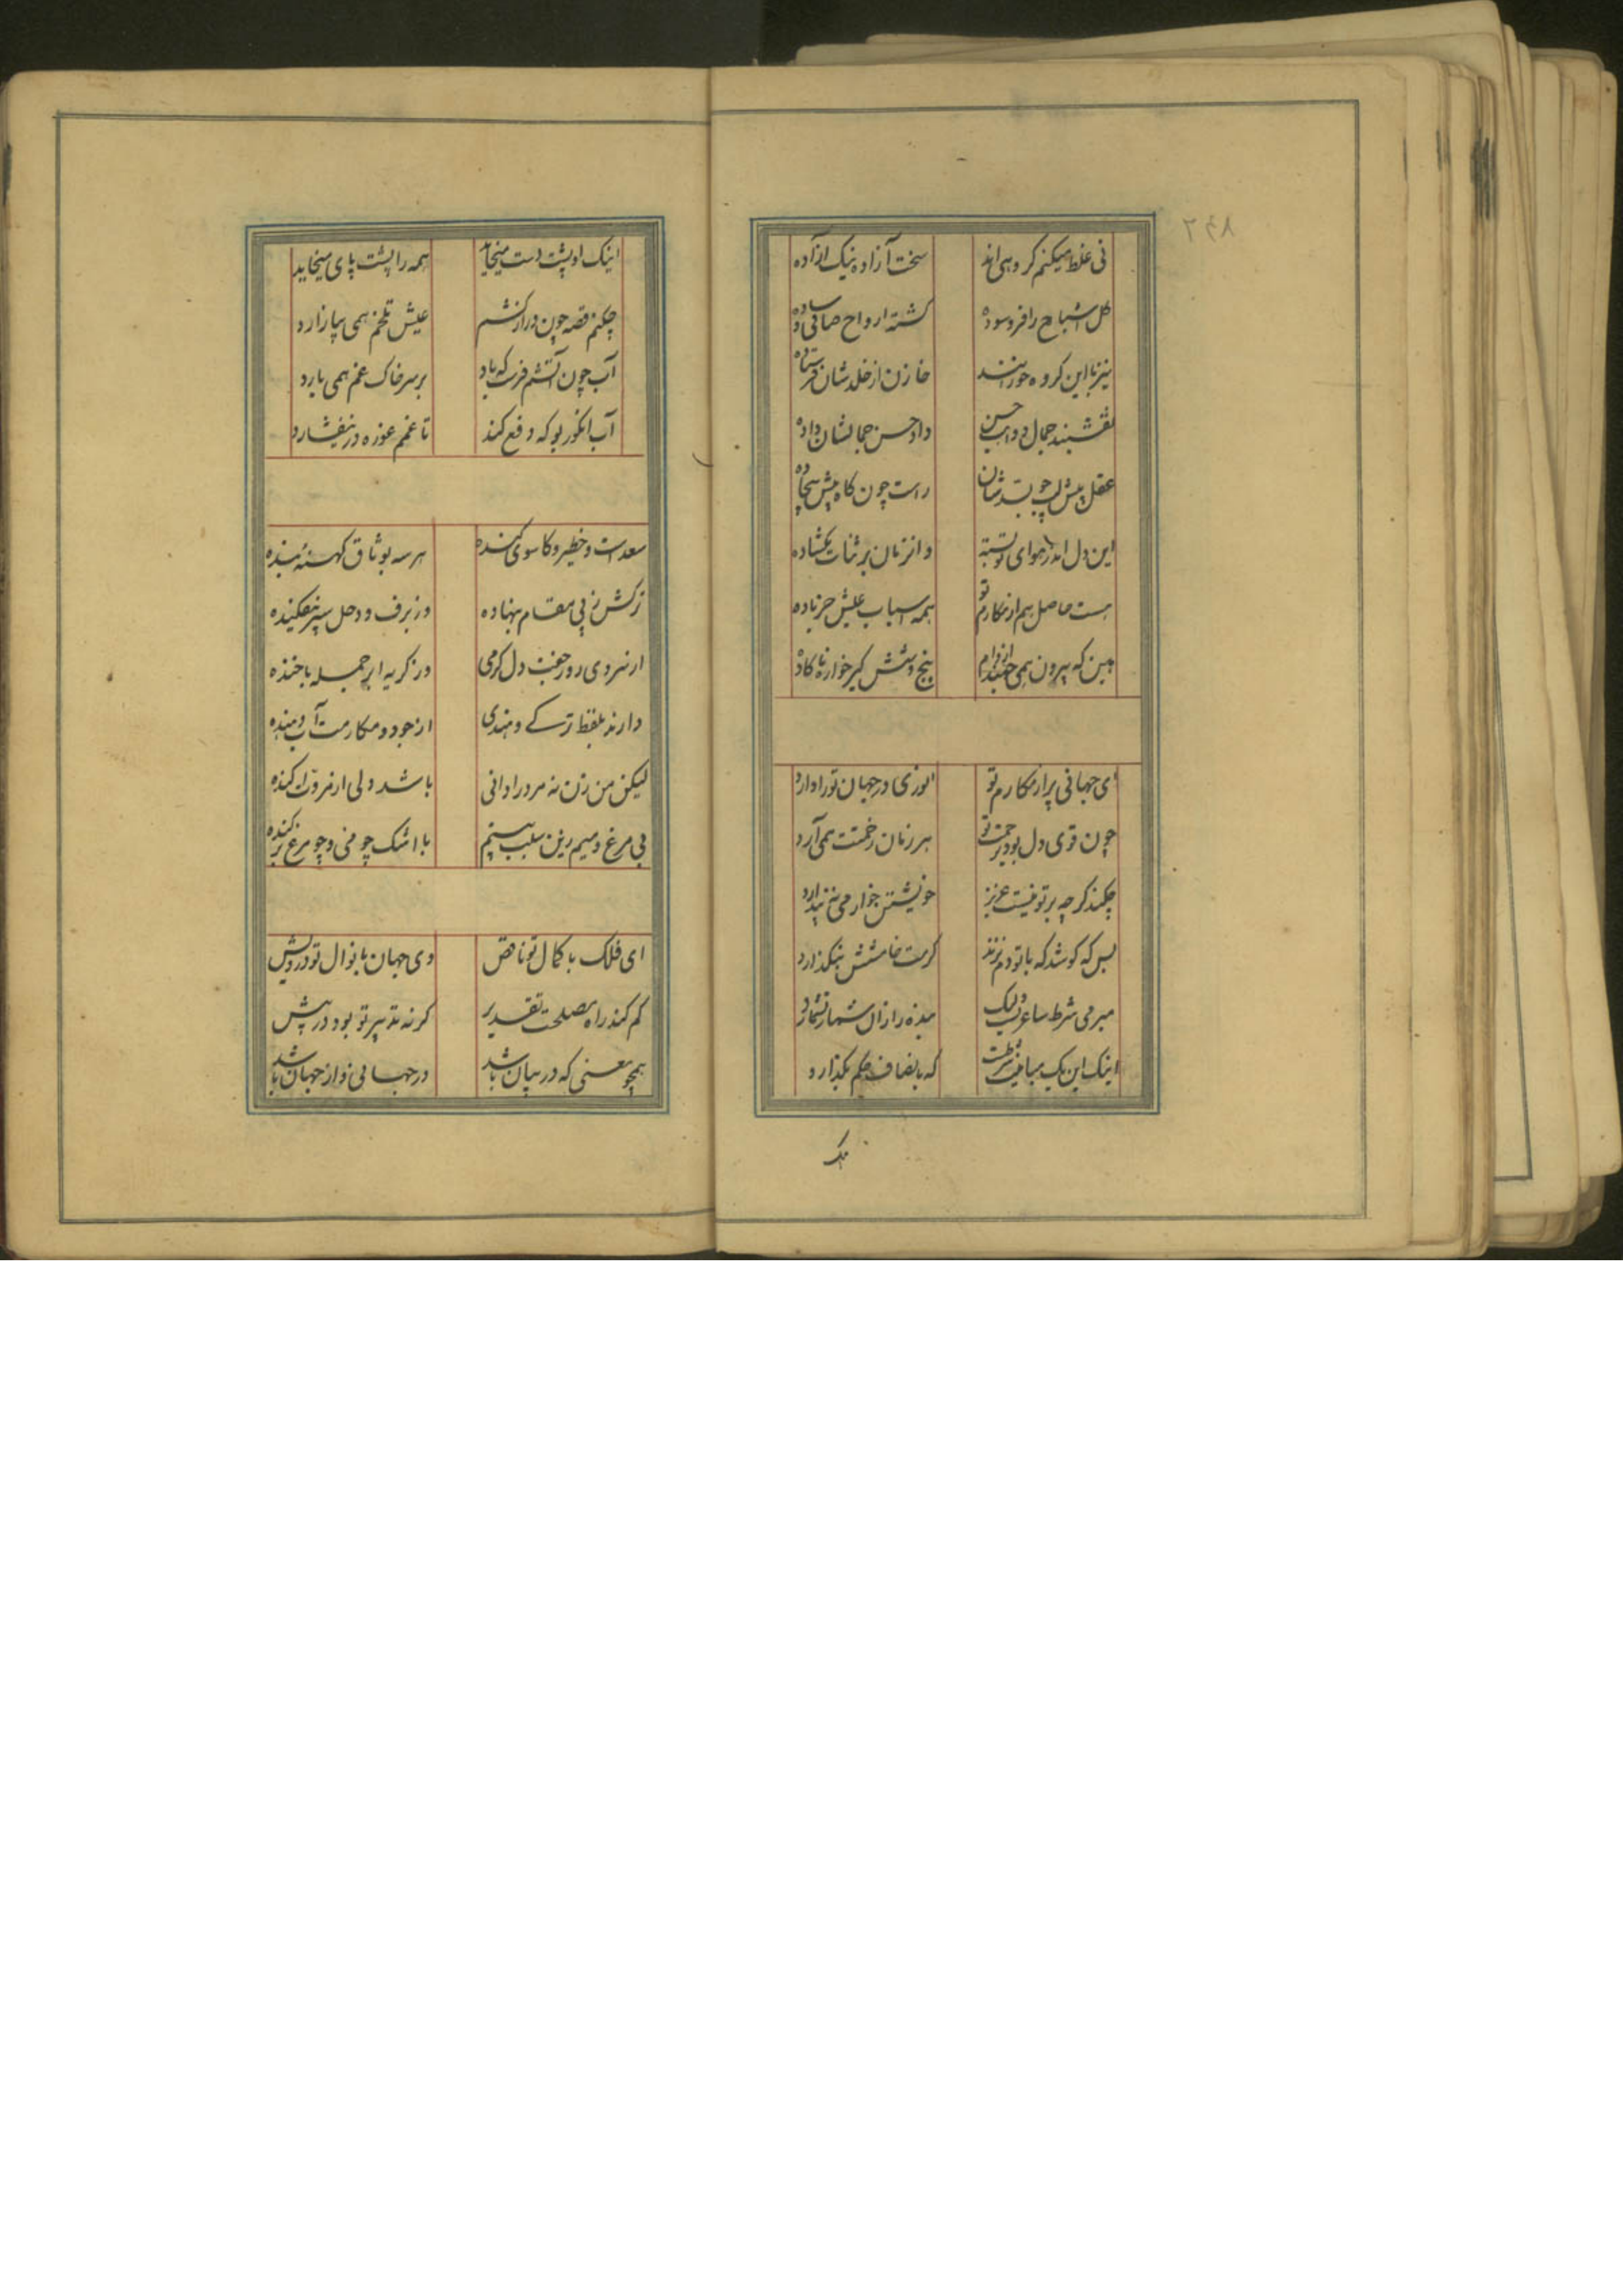 ۲۶۸
نی غلط میکنم کروهی اند سخت آزاده نیک ازاده
کل اشباح را فرسوده کشته ارواح صافی و ساده
نیز با این کروه خورسند خازن از خلدشان فرستاده
نقشبند جمال و داب حسن داد حسن جمالشان داده
عقل پیش لب چو بسدشان راست چون کاه پیش بیجاده
این دل اندر هوای تو بسته وانزمان بر ثنات بکشاده
هست حاصل هم از مکارم تو همه اسباب عیش جز باده
بین که بیرون همی از دوام پنج و شش کیرخواره ناکاده
ای جهانی پر از مکارم تو انوری در جهان تو را دارد
چون قوی دل بود برحمت تو هر زمان زحمتت همی آرد
چکند کرچه بر تو نیست عزیز خویشتن خوار می نپندارد
بس که کوشد که با تو دم نزند کرمت خامشش بنکذارد
مبرمی شرط شاعریست ولیک بنده را زان شمار نشمارد
اینک این یک میانه رفت که بانصاف حکم بکذارد
اینک او پشت دست میخاید همه را پشت پای میخاید
چکنم قصه چون دراز کشم عیش تلخم همی بیازارد
آب چون آتشم فرست که باد بر سر خاک غم همی بارد
آب انکور بو که دفع کند تا غمم غوره در نیفشارد
سعدست و خطیر و کاسوی کنده هر سه بوثاق کهنهٔ بنده
ترکش ز پی مقام بنهاده وز برف و وحل سپر بیفکنده
از سردی روز جفت دل کرمی وز کریه ابر جمله با خنده
دارند بلفظ ترکی و هندی از جود و مکارمت آب و بنده
لیکن من زن نه مرد را دانی باشد ولی از مروت اکنده
بی مرغ و سیم زین سلب بینیم با اشک چو منی و چو مرغ پر کنده
ای فلک با کمال تو ناقص وی جهان با نوال تو درویش
کم کند راه مصلحت تقدیر کر نه تدبیر تو بود در پیش
همچو معنی که در بیان باشد در جهانی و از جهان باشد